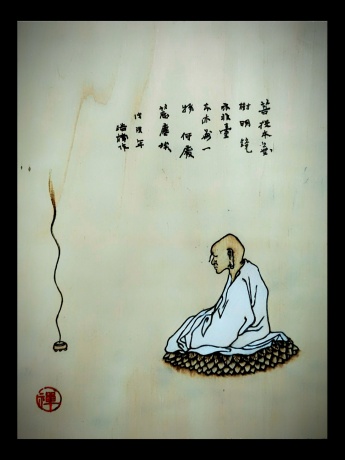 菩提本無
樹明鏡
亦非臺
本來無一
物何處
惹塵埃
戊戌年
禪